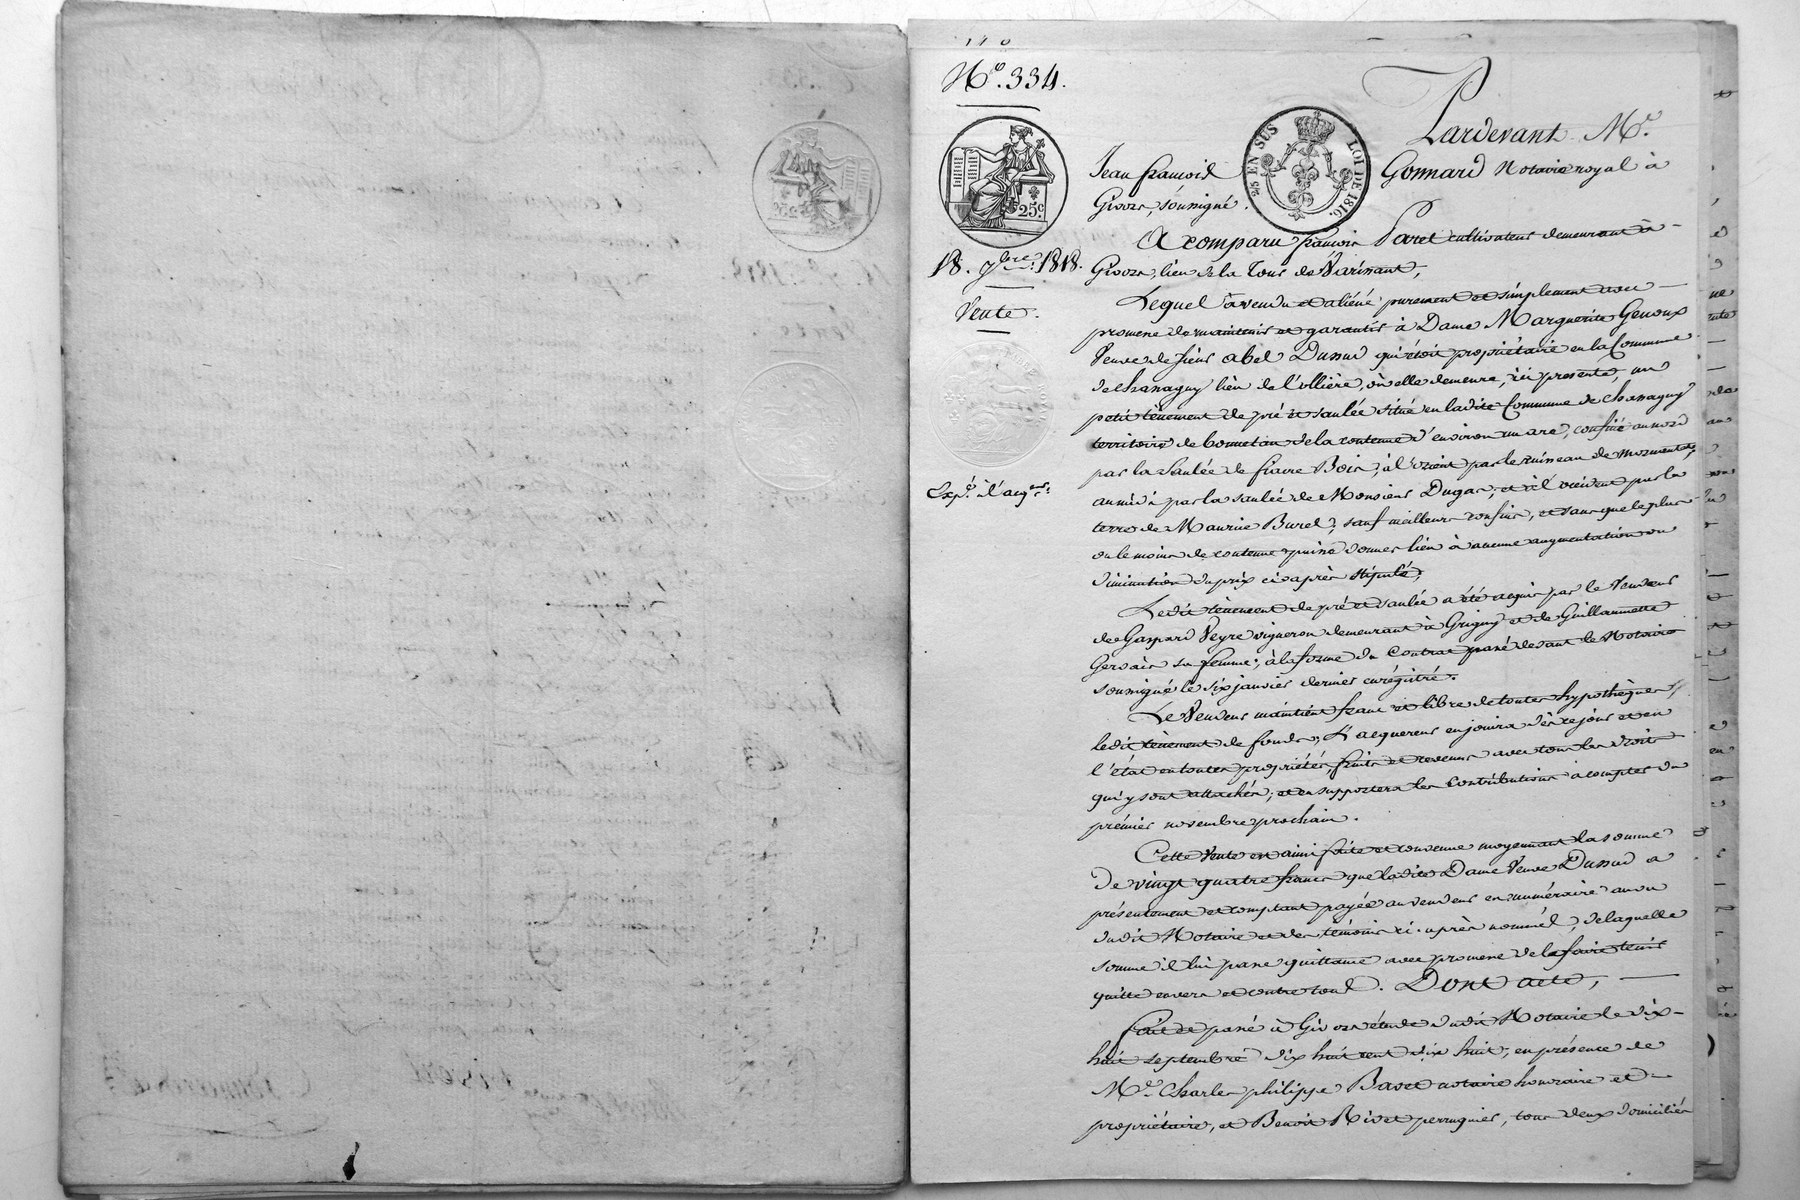 N.º 334.
Pardevant M.e
EN SUS
LOI DE 1816.
25 c.
Jean françois Gonnard Notaire royal à
Givors, soussigné.
A comparu françois Paret cultivateur demeurant à
18. 7bre 1818.
Givors, lieu de la Tour de Varissant,
Vente.
Lequel à vendu et aliéné purement et simplement avec
promesse de maintenir et garantir à Dame Marguerite Genoux
Veuve de sieur abel Dussud qui étoit propriétaire en la Commune
de chassagny lieu de l'ollière, où elle demeure, ici presente, un
petit tènement de pré et saulée situé en ladite Commune de chassagny
territoire de bonnetan de la contenue d'environ un are, confiné au nord
par la saulée de fiacre Bois; à l'orient par le ruisseau de mornantet,
Exp.é à l'acq.eur
au midi par la saulée de Monsieur Dugas; et à l'occident par la
terre de Maurice Burel; sauf meilleurs confins, et sans que le plus
ou le moins de contenue puisse donner lieu à aucune augmentation ou
diminution du prix ci après stipulé;
Ledit tènement de pré et saulée a été acquis par le Vendeur
de Gaspard Veyre vigneron demeurant à Grigny et de Guillaumette
Gervais sa femme; à la forme du Contrat passé devant le Notaire
soussigné le six janvier dernier enrégitré.
Le Vendeur maintient franc et libre de toutes hypothèques,
ledit tènement de fonds; L'acquereur en jouira dès ce jour et en
l'état en toutes propriétés, fruits et revenus avec tous les droits
qui y sont attachés; et en supportera les Contributions à compter du
prémier novembre prochain.
Cette Vente est ainsi faite et convenue moyennant la somme
De vingt quatre francs que ladite Dame Veuve Dussud a
présentement et comptant payée au vendeur en numéraire au vu
dudit Notaire et des témoins ci-après nommés, de laquelle
somme il lui passe quittance avec promesse de la faire tenir
quitte envers et contre tous. Dont acte,
fait et passé à Givors étude dudit Notaire le dix-
huit septembre dix huit cent dix huit; en présence de
M.e Charles philippe Basset notaire honoraire et
propriétaire, et Benoit Rivet perruquier, tous deux domiciliés